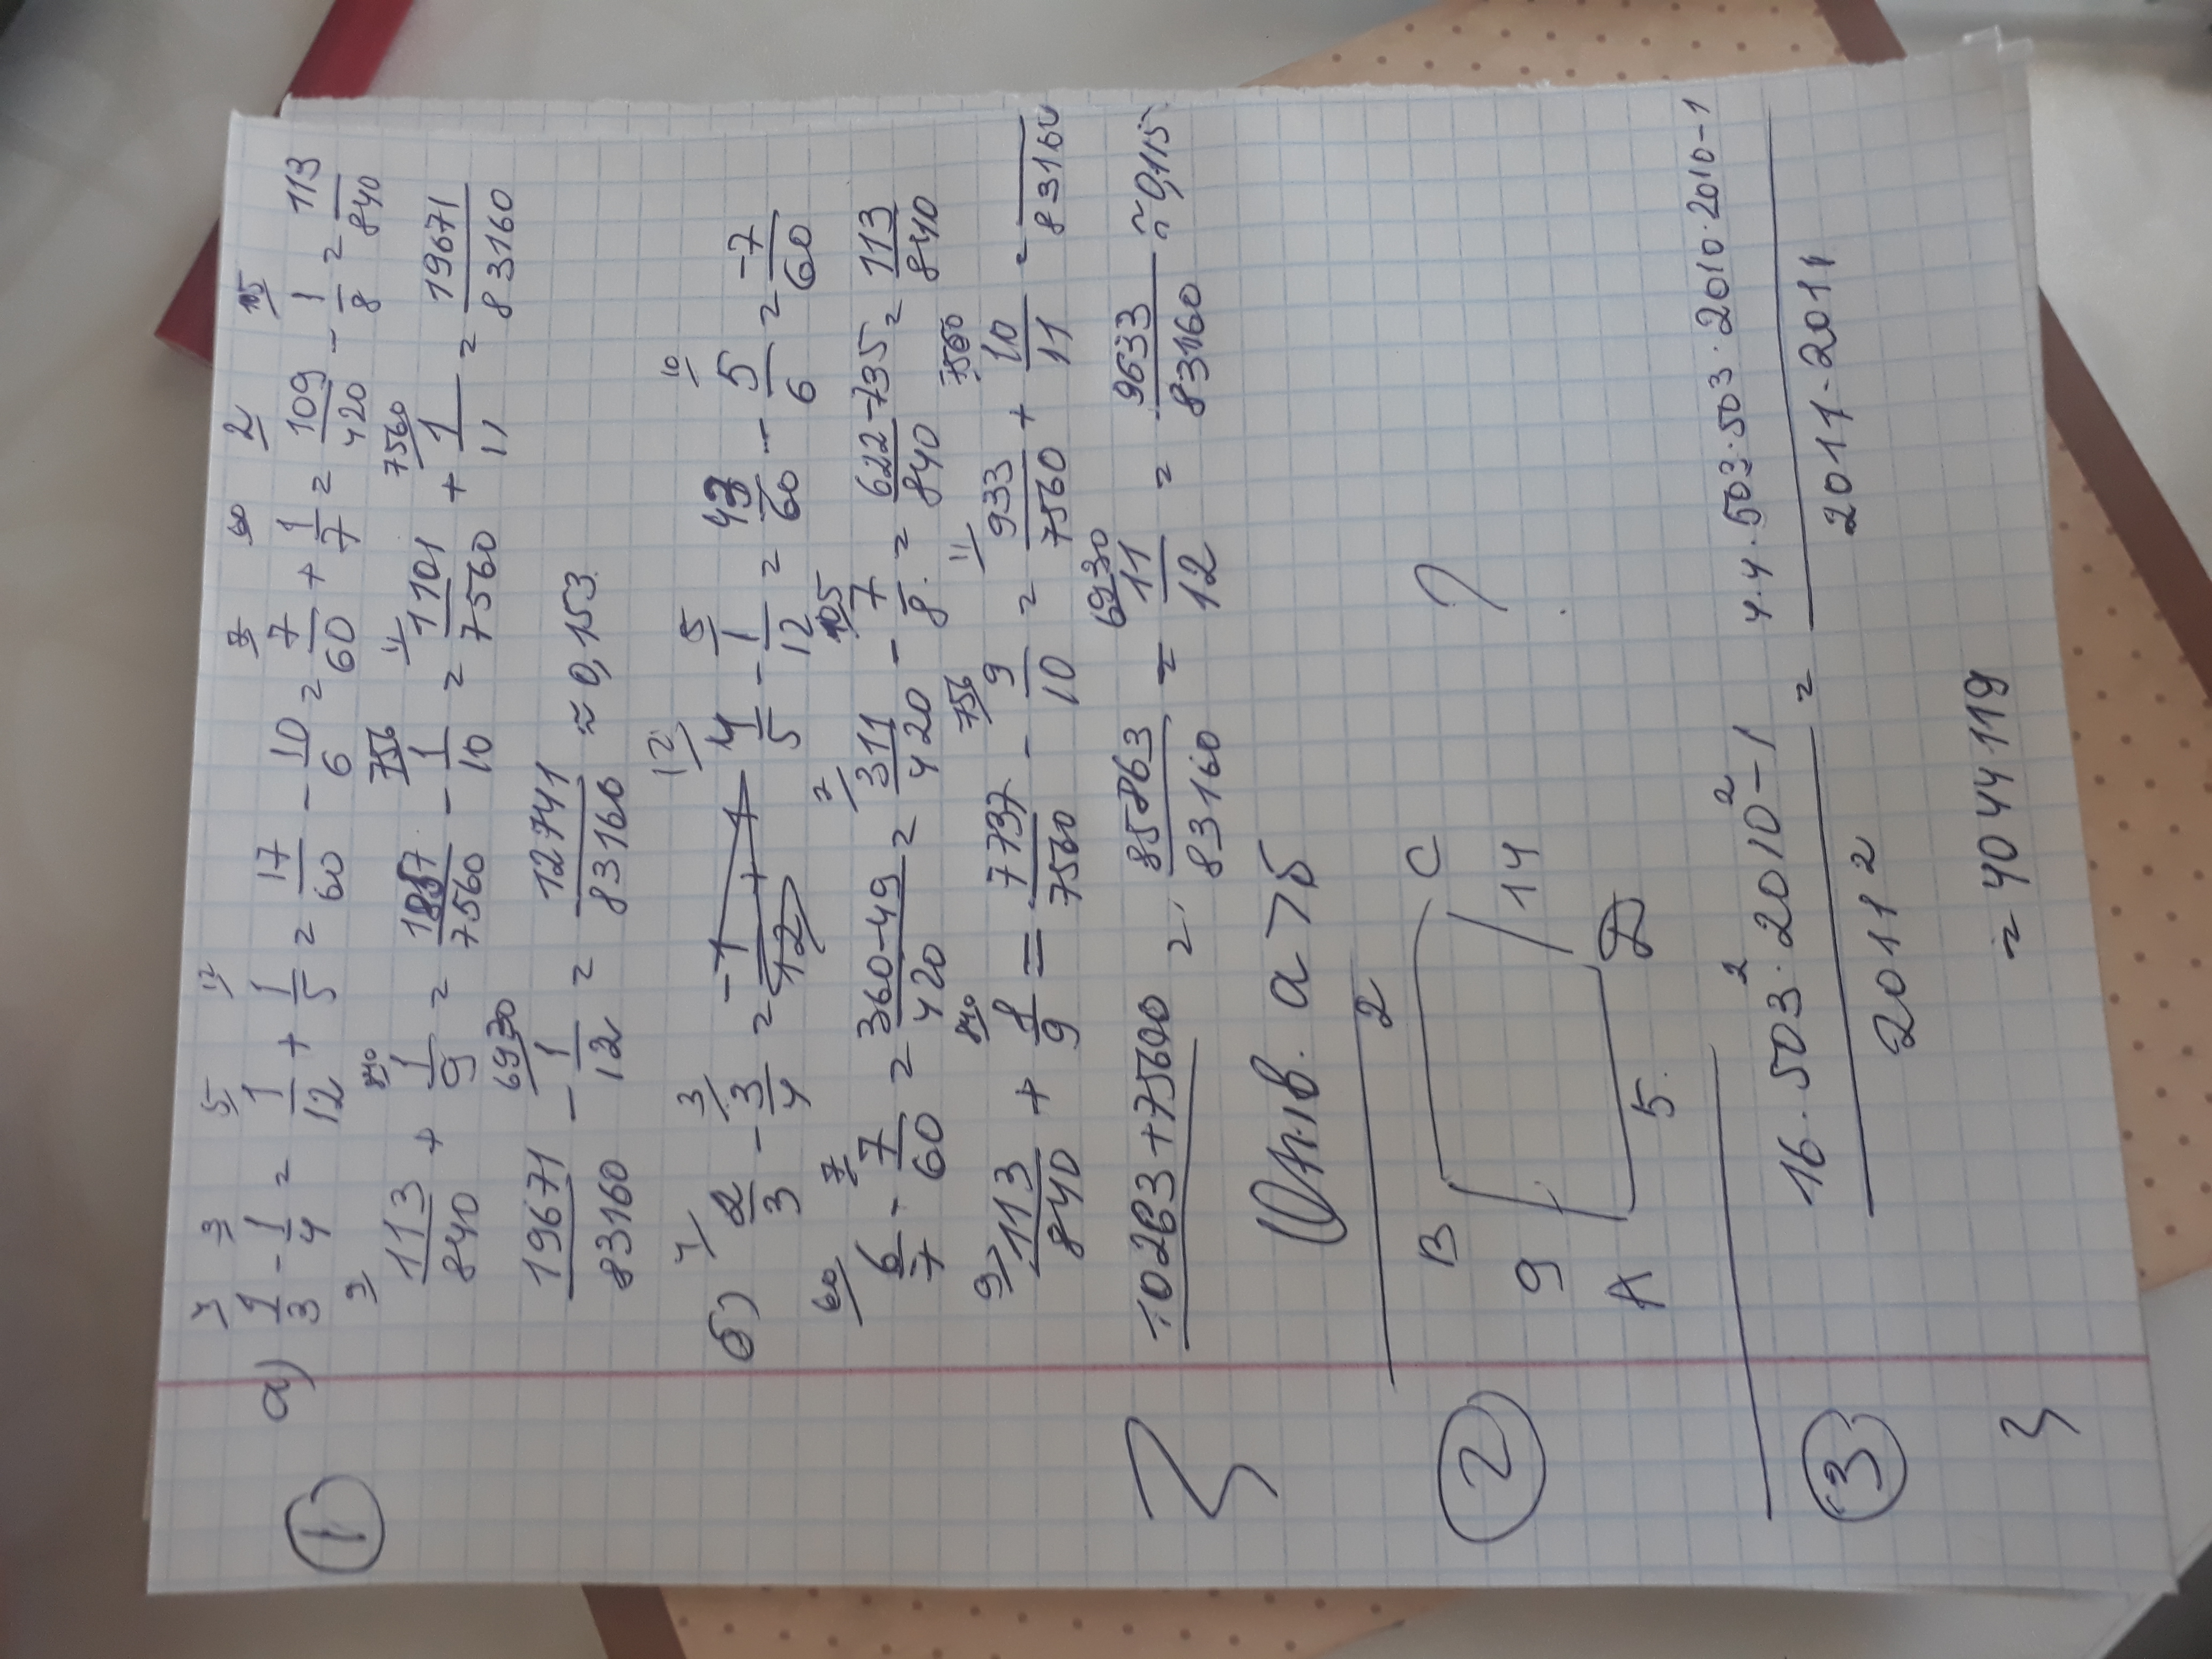 ① а) 1/3 - 1/4 = 1/12 + 1/5 = 17/60 - 10/6 = 7/60 + 1/7 = 109/420 - 1/8 = 113/840
113/840 + 1/9 = 1857/7560 - 1/10 = 1101/7560 + 1/11 = 19671/83160
19671/83160 - 1/12 = 12741/83160 ≈ 0,153.
б) 2/3 - 3/4 = 4/5 - 1/12 = 43/60 - 5/6 = -7/60
6/7 - 7/60 = 360-49/420 = 311/420 - 7/8 = 622-735/840 = 113/840
113/840 + 8/9 = 7737/7560 - 9/10 = 933/7560 + 10/11 = /83160
10263+75600 = 85863/83160 - 11/12 = 9633/83160 ≈ 0,115
Отв. а > б
② B 2 C
9 14 ?
A 5 D
③ 16·503²·2010²-1/2011² = 4·4·503·503·2010·2010-1/2011·2011
= 4044119